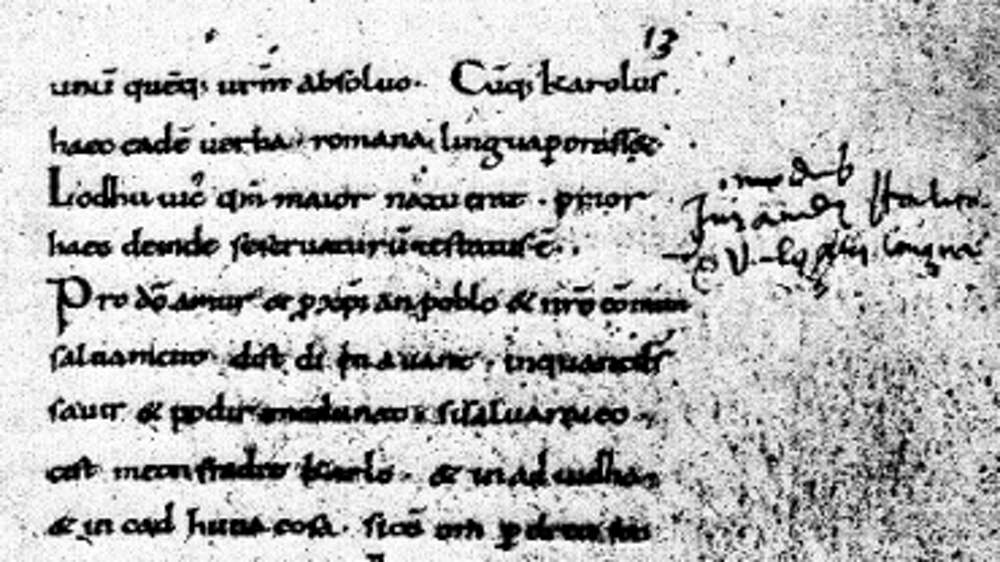 13
unū quēq; urm̄ absoluo. Cūq; karolus
haec eadē uerba romana lingua porasset.
Lodhuuic̄ qm̄ maior natu erat. prior
haec deinde se seruaturū testatus ē.
Pro dō amur & p xp̄ian poblo & nrō cōmun
saluament. dist di in auant. inquantds
sauir & podir me dunat. si saluaraieo
cist meon fradre karlo. & in ad iudha
& in cad huna cosa. sicū om p dreit son